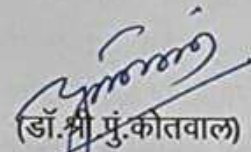 (डॉ.श्री.पुं.कोतवाल)